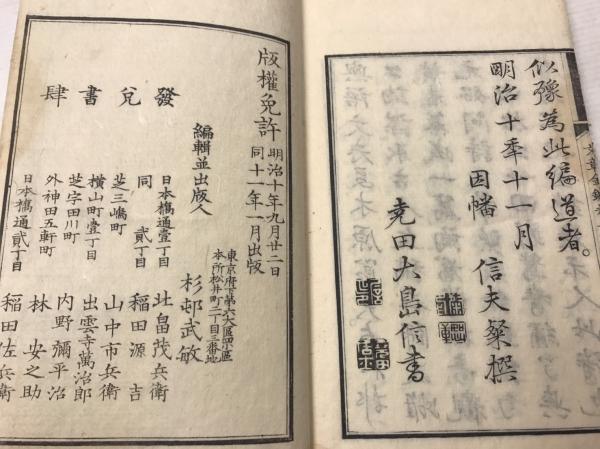 似豫為此編道者。
明治十年十一月
因幡 信夫粲撰
堯田大島信書
版權免許 明治十年九月廿二日
同十一年一月出版
編輯並出版人
東京府下第六大區四小區
本所松井町二丁目三番地
杉邨武敏
發兌書肆
日本橋通壹丁目 北畠茂兵衛
同 貳丁目 稻田源吉
芝三嶋町 山中市兵衛
横山町壹丁目 出雲寺萬治郎
芝宇田川町 内野彌平治
外神田五軒町 林安之助
日本橋通貳丁目 稻田佐兵衛